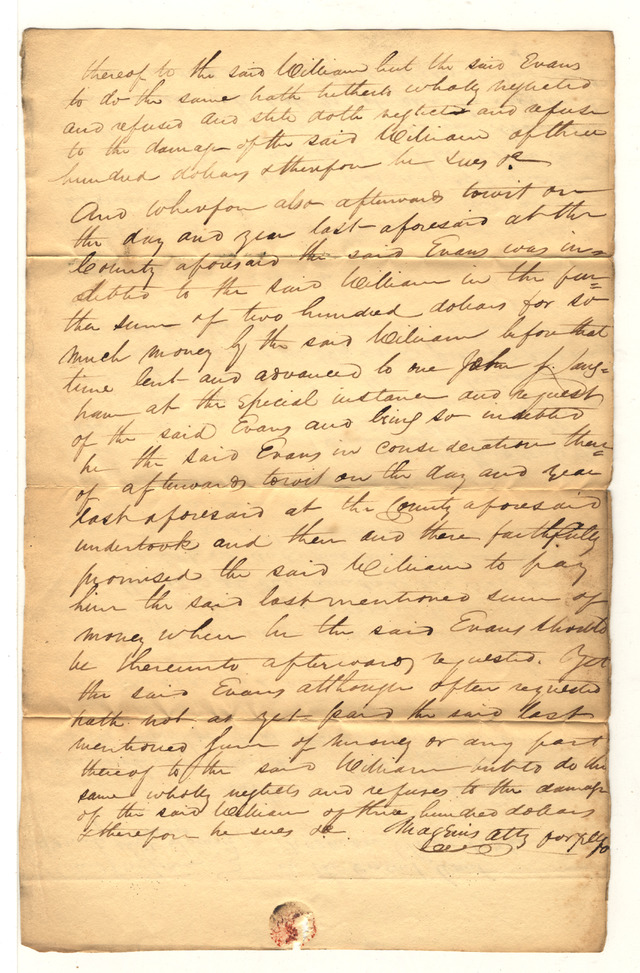 thereof to the said William but the said Evans
to do the same hath hitherto wholly neglected
and refused and still doth neglect and refuse
to the damage of the said William of three
hundred dollars & therefore he sues &c
And wherefore also afterwards towit on
the day and year last aforesaid at the
County aforesaid the said Evans was in=
debted to the said William in the fur=
ther sum of two hundred dollars for so
much money by the said William before that
time lent and advanced to one John J. Lang=
ham at the special instance and request
of the said Evans and being so indebted
he the said Evans in consideration there=
of afterwards towit on the day and year
last aforesaid at the County aforesaid
undertook and then and there faithfully
promised the said William to pay
him the said last mentioned sum of
money when he the said Evans should
be thereunto afterwards requested. Yet
the said Evans although often requested
hath not as yet paid the said last
mentioned sum of money or any part
thereof to the said William but to do the
same wholly neglects and refuses to the damage
of the said William of three hundred dollars
& therefore he sues &c Magenis atty for plff